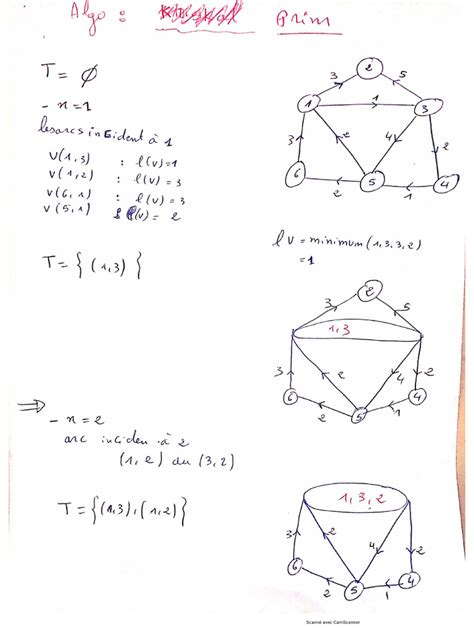 Algo : Prim
T = ∅
- n=1
les arcs incident à 1
v(1,3) : l(v)=1
v(1,2) : l(v)=3
v(6,1) : l(v)=3
v(5,1) l(v)= 2
T={(1,3)}
2
3
5
1
1
3
3
2
4
2
6
2
5
1
4
l v = minimum (1,3,3,2)
=1
2
3
5
1,3
3
2
4
2
6
2
5
1
4
⇒
- n=2
arc inciden à 2
(1,2) ou (3,2)
T={(1,3),(1,2)}
1,3,2
3
2
4
2
6
2
5
1
4
Scanné avec CamScanner